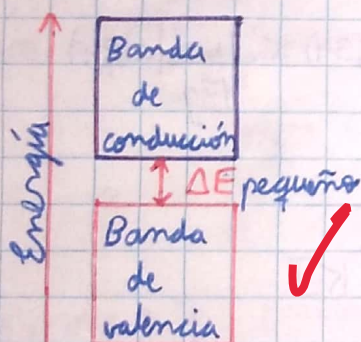 Energía
Banda
de
conducción
ΔE pequeño
Banda
de
valencia